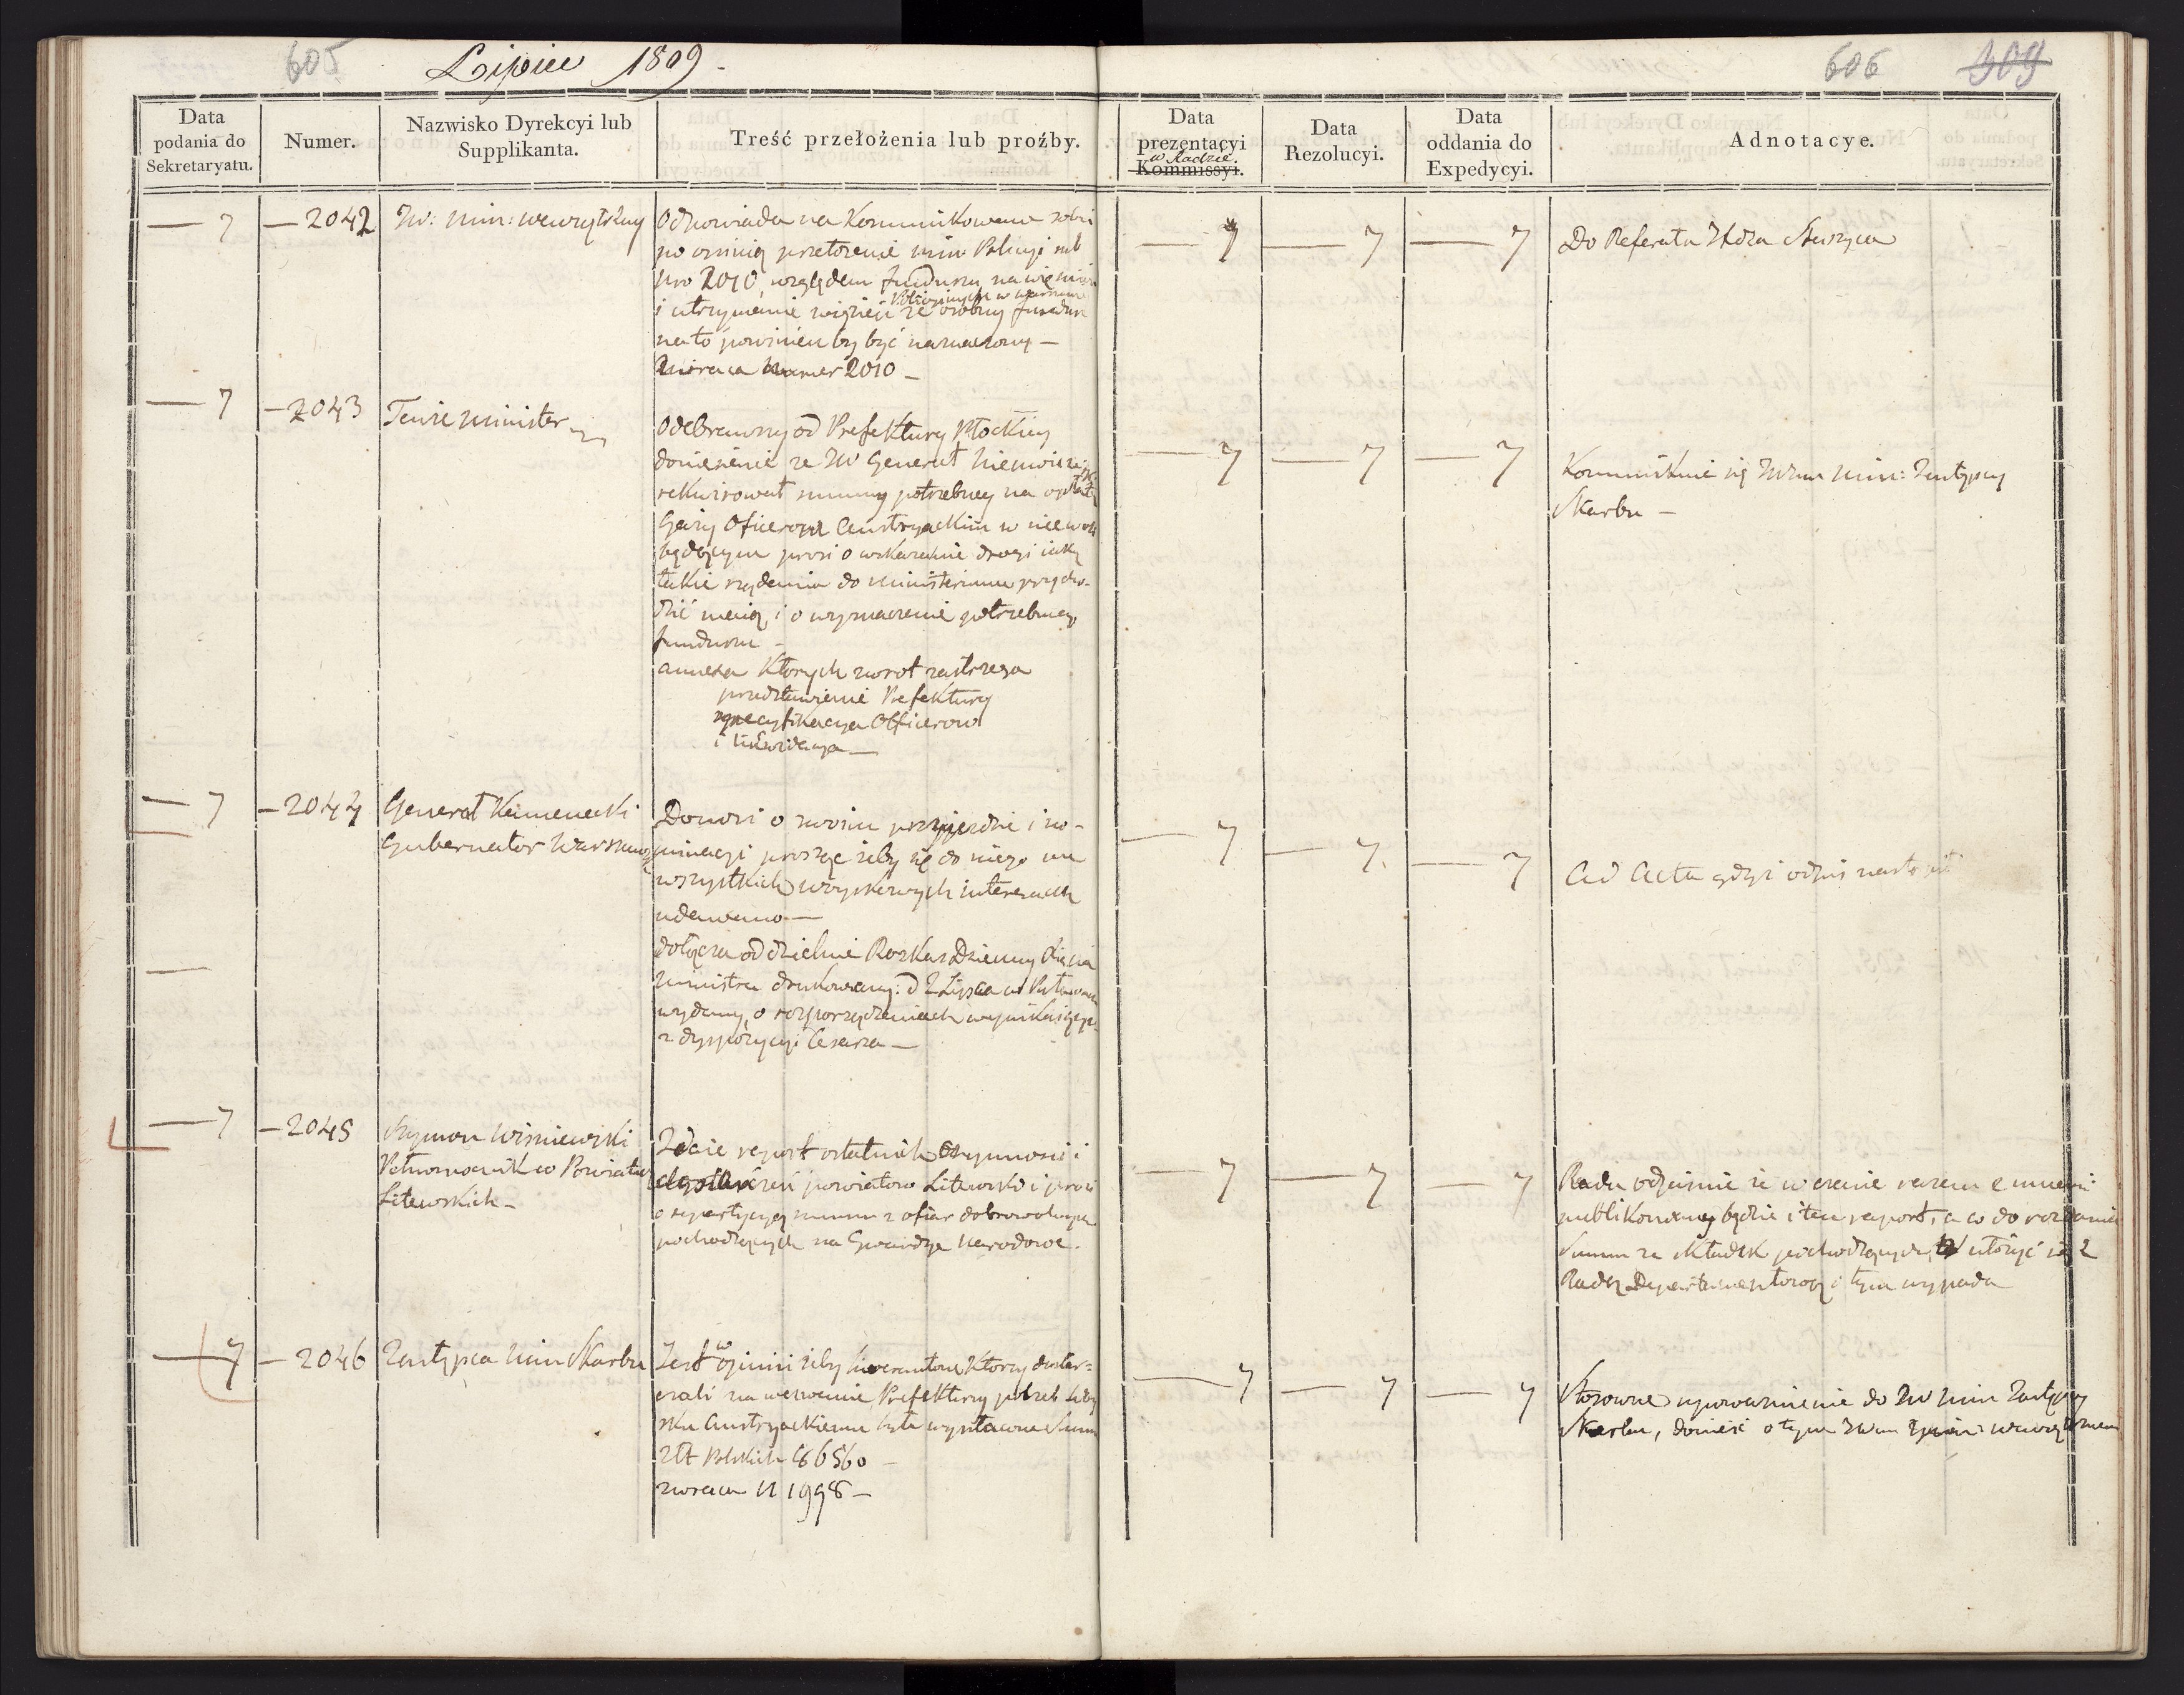 605 Lipiec 1809 -
606 309
Data podania do Sekretaryatu.
Numer.
Nazwisko Dyrekcyi lub Supplikanta.
Treść przełożenia lub proźby.
Data prezentacyi w Radzie. Kommissyi.
Data Rezolucyi.
Data oddania do Expedycyi.
Adnotacye.
— 7 — 2042 JW: Min: wewnętrzny
Odpowiada na kommunikowane sobie
po opinią przełożenie Min: Policyi sub
Nro 2010, względem funduszu na więzienia
i utrzymanie więźni Policyinych w Warszawie że osobny fundusz
na to powinien by być naznaczony —
Zwraca Numer 2010 —
— 7 — 7 — 7
Do Referatu
— 7 — 2043 Tenże Minister
Odebrawszy od Prefektury Płockiey
doniesienie że JW Generał
rekwirował summy potrzebney na opłatę
Gaży Oficerom Austryackim w niewoli
będącym prosi o wskazanie drogi iaką
takie rządania do Ministerium przycho-
dzić maią, i o wyznaczenie potrzebnego
funduszu —
annexa których zwrot zastrzega
przedstawienie Prefektury
specyfikacya Officerow
i likwidacya —
— 7 — 7 — 7
Kommunikuie się JWmu Min: Zastępcy
Skarbu —
— 7 — 2044 Generał Kamenecki
Gubernator Warszawy
Donosi o swoim przyjeździe i no-
minacyi prosząc żeby się do niego we
wszystkich woyskowych interesach
udawano —
dołącza oddzielnie Rozkaz Dzienny Xięcia
Ministra drukowany: d 2 Lipca w Puławach
wydany, o rozporządzeniach wynikaiących
z dyspozycyi Cesarza —
— 7 — 7. — 7
Ad Acta gdyż odpis nastąpił
— 7 — 2045 Szymon Wiśniewski
Pełnomocnik w Powiatach
Litewskich —
Zdaie report ostatnich czynności i
powiatow Litewskich i prosi
o repartycyą summ z ofiar dobrowolnych
pochodzących na Gwardye Narodowe.
— 7 — 7 — 7
Rada odpisuie że w czasie razem z innemi
publikowany będzie i ten raport, a co do rozdania
Summ ze składek pochodzących, ułożyć się z
Radą Departamentową i tym wypada
— 7 — 2046 Zastępca Min Skarbu
Jest w opinii żeby liwerantom którzy dostar=
czali na wezwanie Prefektury potrzeb woy
sku Austryackiemu była wypłacona Summa
Złt Polskich 66560 —
zwraca N 1998 —
— 7 — 7 — 7
Stosowne upoważnienie do JW Min Zastępcy
Skarbu, donieść o tym JWmu Min: wewnętrznemu